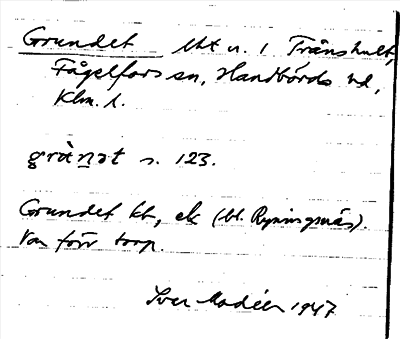 Grundet lht u. 1 Tränshult,
Fågelfors sn, Handbörds hd,
Klm. l.
grànət s. 123.
Grundet kt, ek (bl. Ryningsnäs).
Var förr torp.
Ivar Modéer 1947